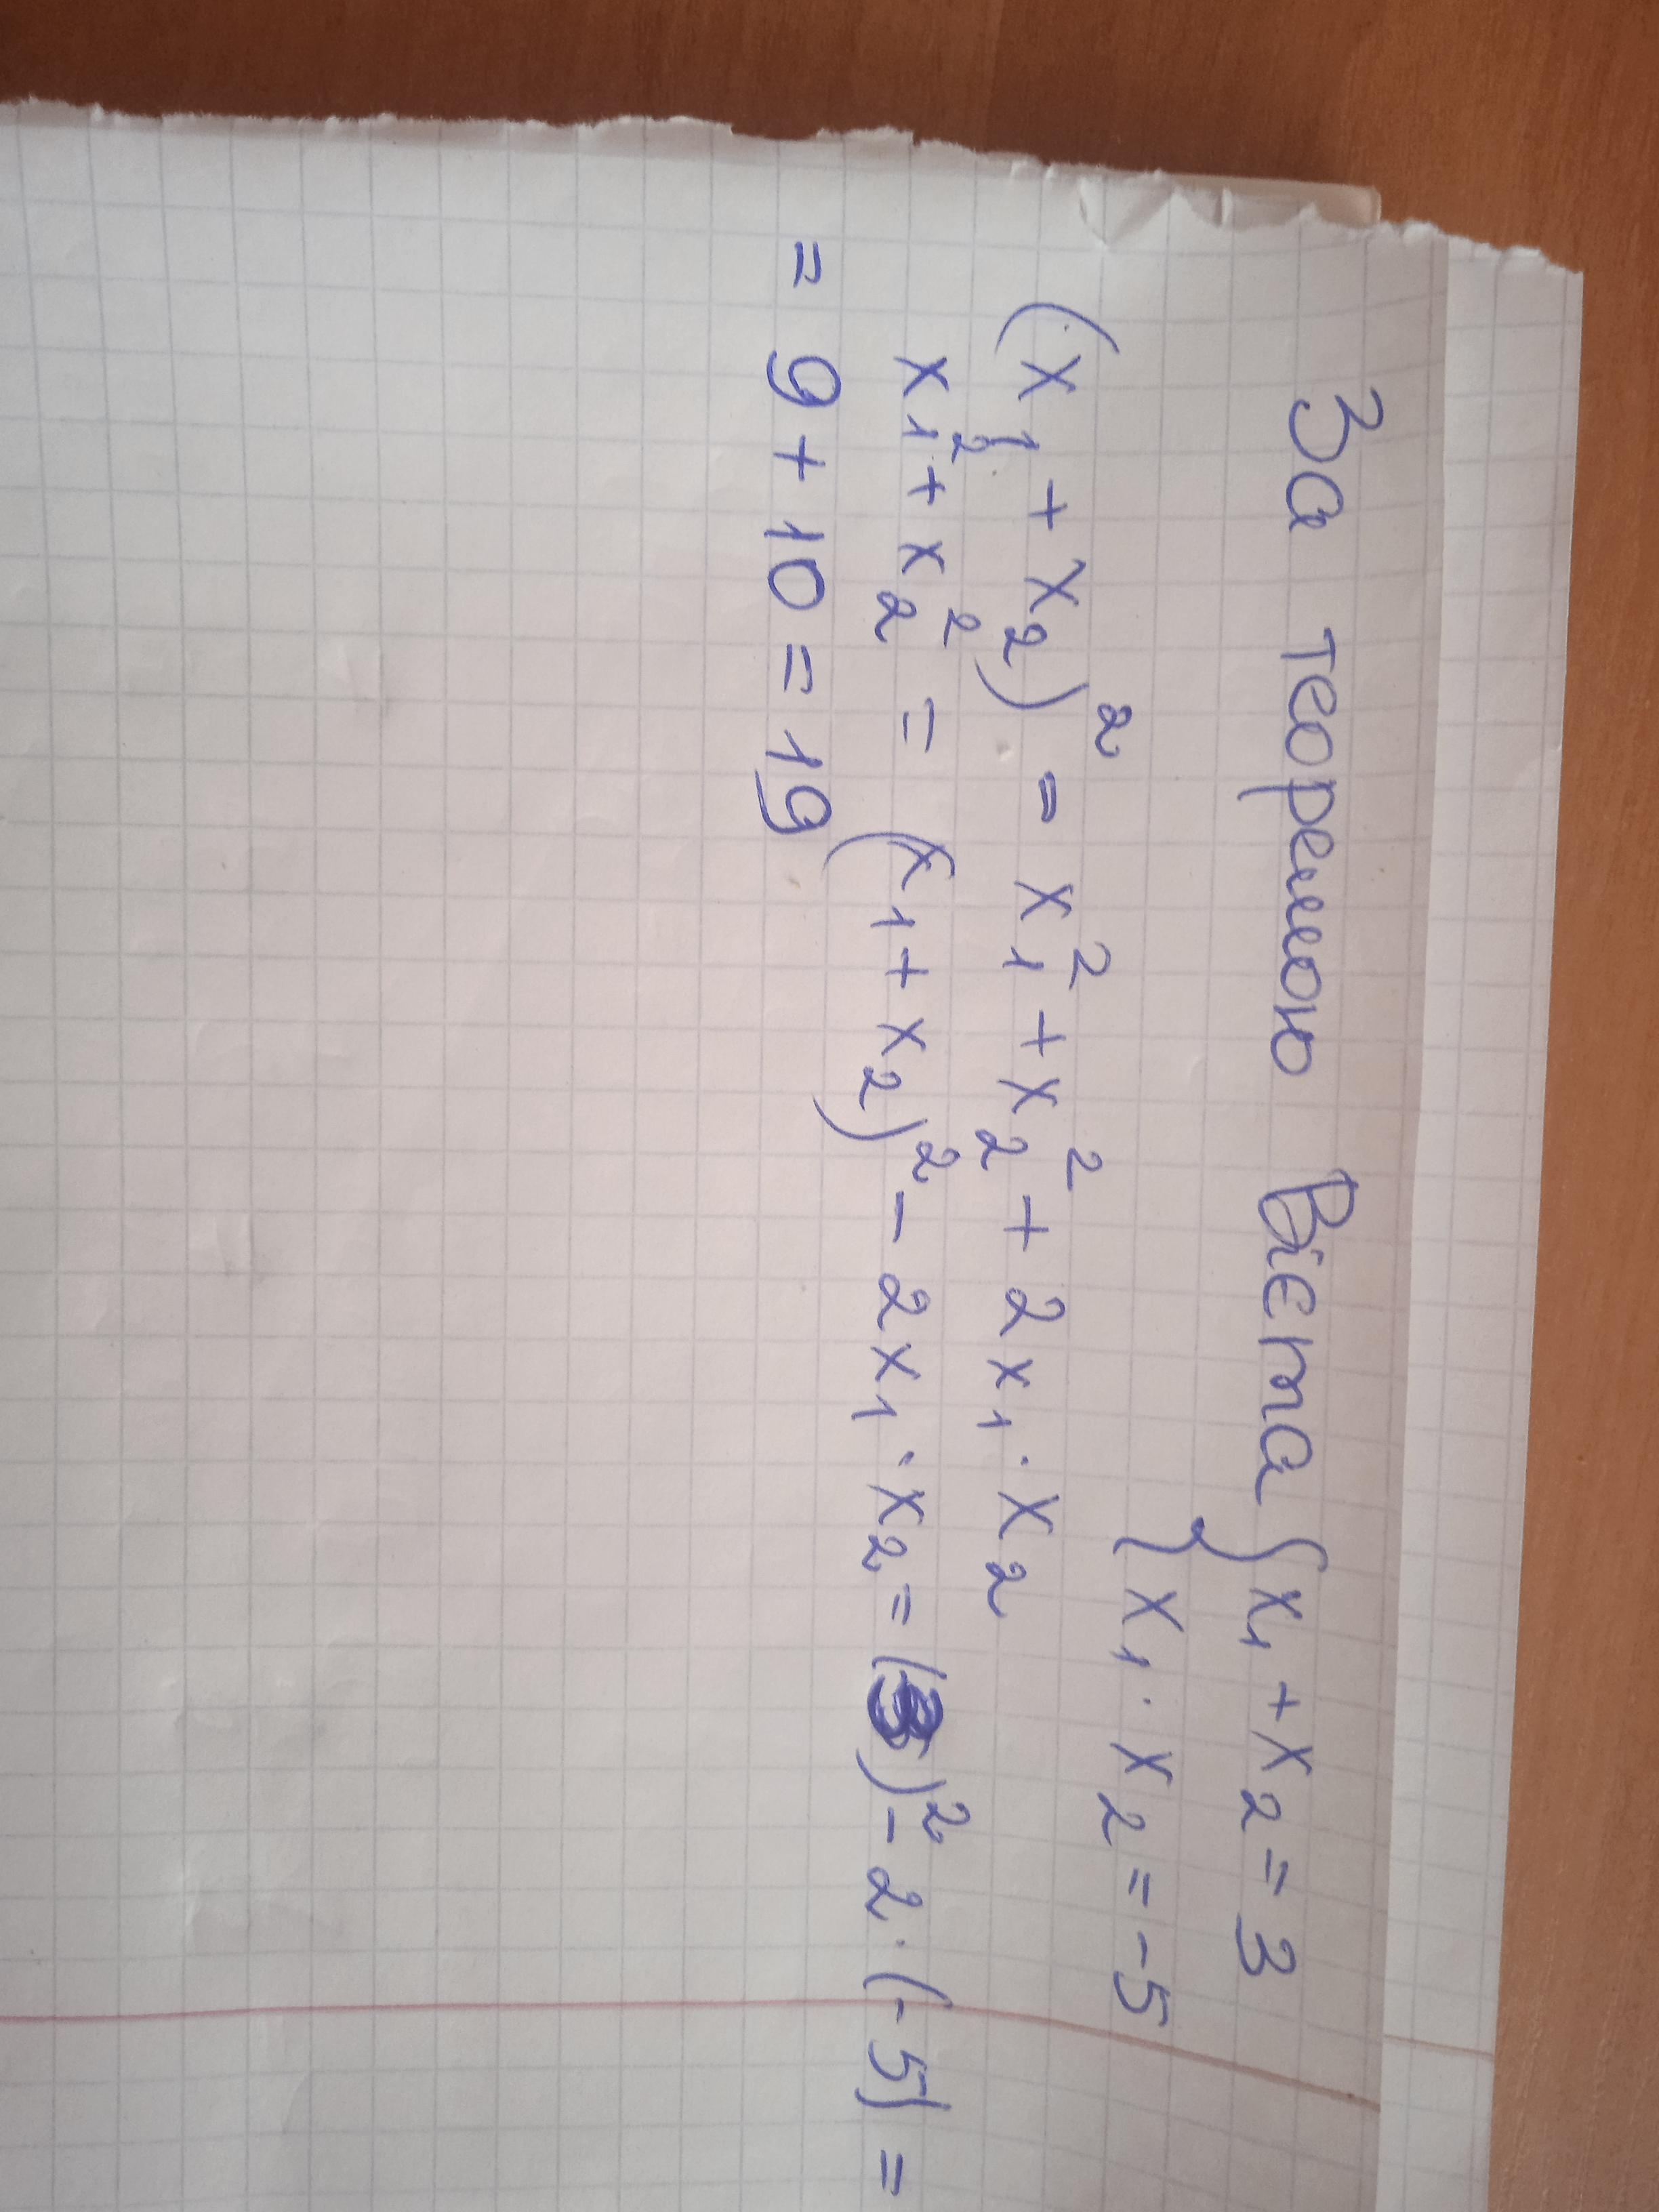 За теоремою Вієта { x₁ + x₂ = 3
{ x₁ · x₂ = -5
(x₁ + x₂)² = x₁² + x₂² + 2x₁ · x₂
x₁² + x₂² = (x₁ + x₂)² - 2x₁ · x₂ = (3)² - 2 · (-5) =
= 9 + 10 = 19